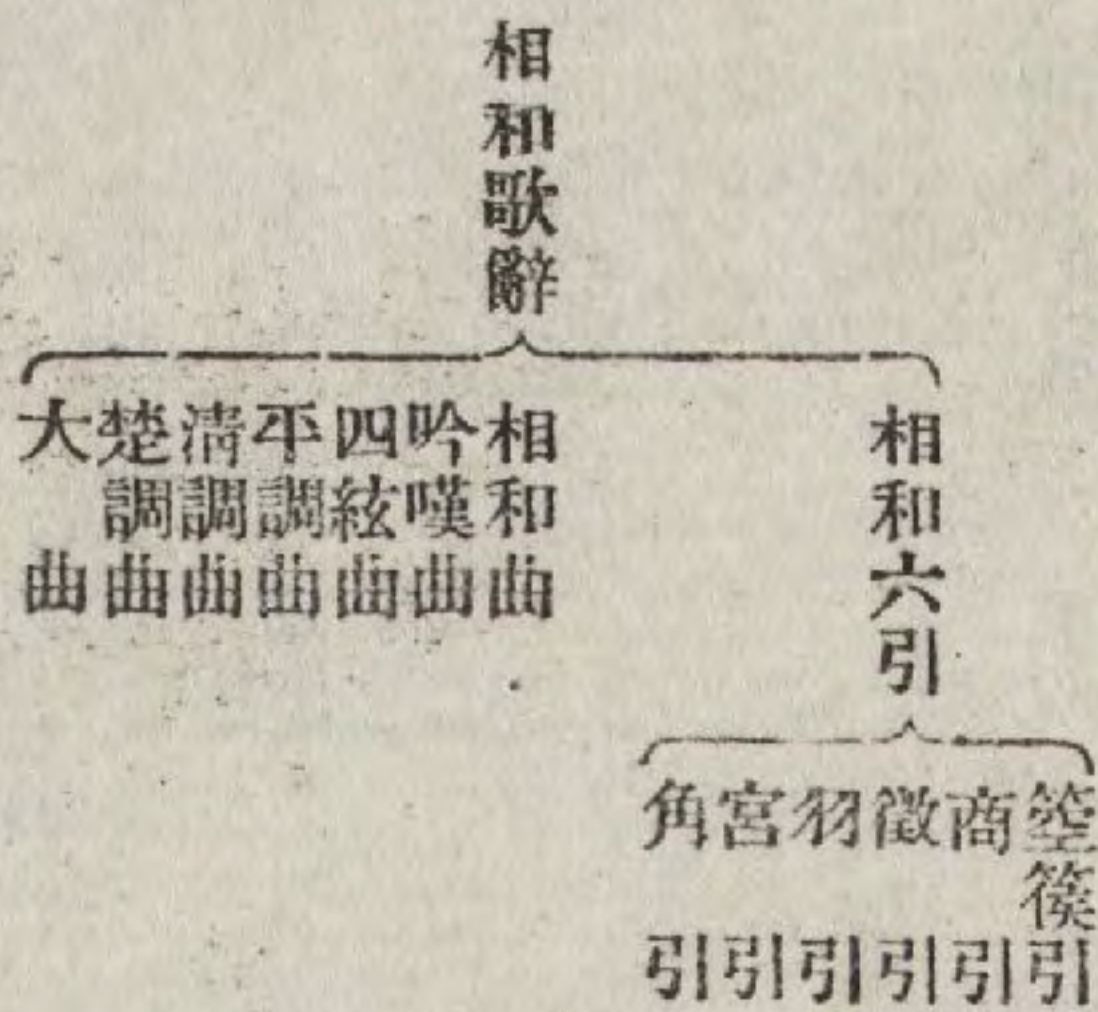 相和歌辭
相和六引
箜篌引
商引
徵引
羽引
宮引
角引
相和曲
吟嘆曲
四絃曲
平調曲
淸調曲
楚調曲
大曲